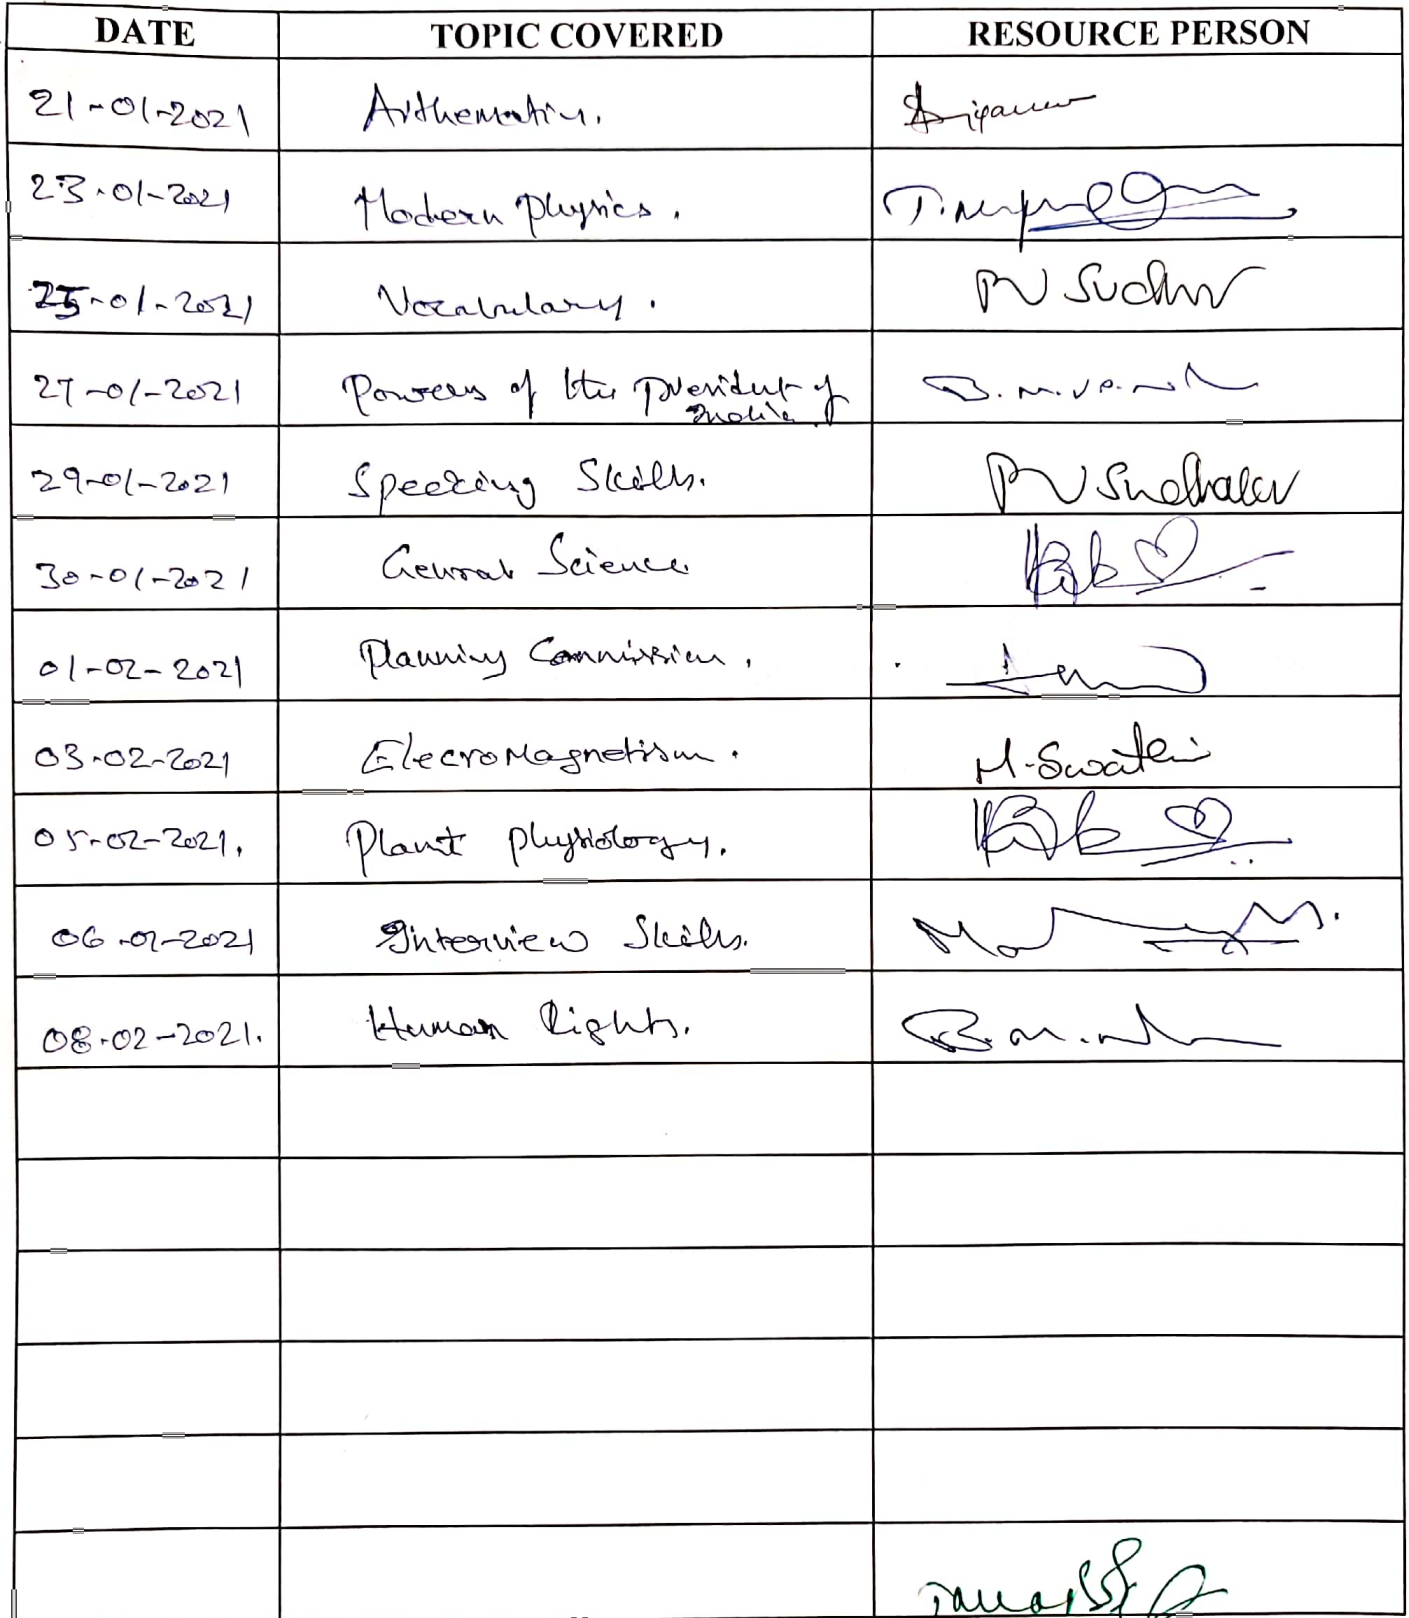 DATE TOPIC COVERED RESOURCE PERSON
21-01-2021 Arthematics.
23-01-2021 Modern physics.
25-01-2021 Vocabulary. PV Sudha
27-01-2021 Powers of the president of
India.
29-01-2021 Speeking Skills. PV Sudhakar
30-01-2021 General Science
01-02-2021 Planning Commission.
03-02-2021 Elecromagnetism. M. Swathi
05-02-2021. Plant physiology.
06-02-2021 Interview Skills.
08-02-2021. Human Rights.